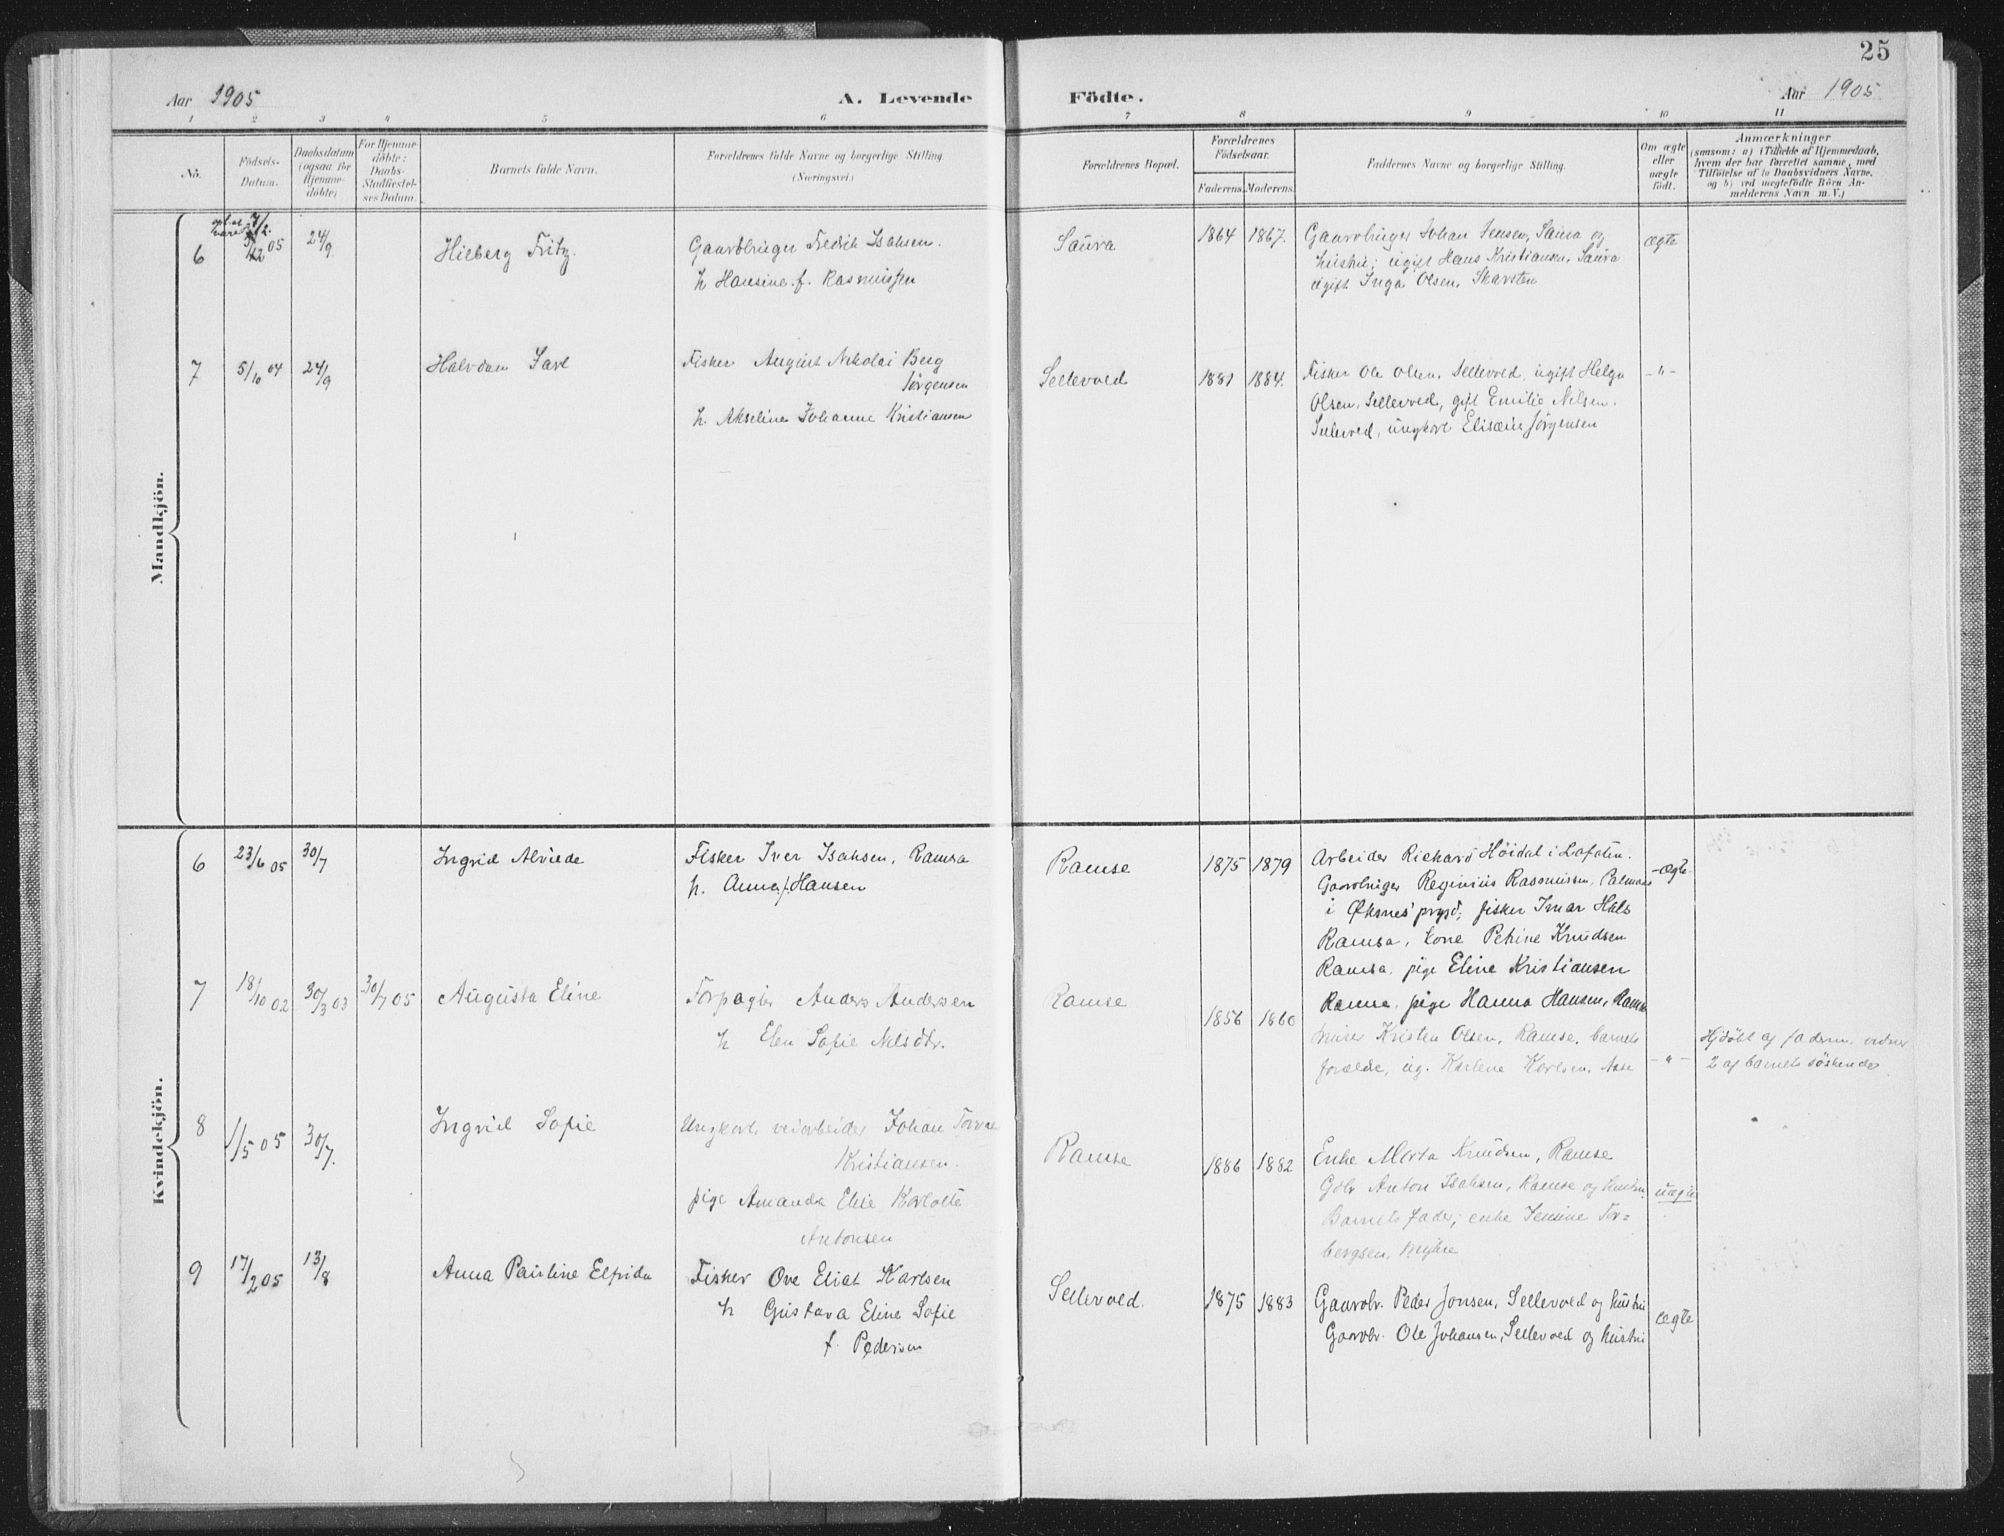 25
Aar 1905
A. Levende Födte.
Aar 1905
1 2 3 4 5 6 7 8 9 10 11
No.
Födsels-
Datum.
Daabsdatum
(ogsaa for
Hjemme-
döbte)
For Hjemme-
döbte:
Daabs-
Stadfæstel-
ses Datum.
Barnets fulde Navn.
Forældrenes fulde Navne og borgerlige Stilling.
(Næringsvei)
Forældrenes Bopæl.
Forældrenes
Födselsaar.
Faderens. Moderens.
Faddernes Navne og borgerlige Stilling.
Om ægte
eller
uægte
födt.
Anmærkninger
(saasom: a) i Tilfælde af Hjemmedaab,
hvem der har forrettet samme, med
Tilföielse af to Daabsvidners Navne,
og b) ved uægtefödte Börn An-
melderens Navn m. V.)
Mandkjön.
6 05 24/9 Hieberg Fritz. Gaardbruger Fredrik Isaksen.
h Hansine f. Rasmussen
Saura 1864 1867. Gaardbruger Johan Jensen, Saura og
hustru; ugift Hans Kristiansen, Saura
ugift Inga Olsen, Skarsten
ægte
7 5/10 04 24/9 Halvdan Jarl Fisker August Nikolai Berg
Jørgensen
h. Akseline Johanne Kristiansen
Sellevold 1881 1884. Fisker Ole Olsen, Sellevold, ugift Helga
Olsen, Sellevold, gift Emilie Nilsen.
Sellevold, ungkarl Elisæus Jørgensen
-"-
Kvindekjön.
6 23/6 05 30/7 Ingrid Alviede Fisker Iver Isaksen, Ramsa
h. Anna f. Hansen
Ramse 1875 1879 Arbeider Richard Höidal i Lofoten.
Gaardbruger Reginius Rasmussen,
i Øksnes prgjd; fisker Ivar Hals
Ramsa, kone Petrine Knudsen
Ramsa, pige Eline Kristiansen
Ramsa, pige Hanna Hansen, Ramse
-ægte-
7 18/10 02 30/3 03 30/7 05 Augusta Eline Forpagter Anders Andersen
h Elen Sofie Nilsdtr.
Ramse 1856 1860
Kristen Olsen, Ramse, barnets
forældre, ug. Karlene Karlsen, Aase
-"-
Hjdöbt af faderen, vidner
2 af barnets söskende
8 1/5 05 30/7. Ingrid Sofie Ungkarl, veiarbeider Johan
Kristiansen.
pige Amanda Elise Karlotte
Antonsen
Ramse 1886 1882 Enke Marta Knudsen, Ramse
Gdbr Anton Isaksen, Ramse og hustru,
Barnets fader; enke Jensine Tor=
bergsen, Myhre
uægte
9 17/2 05 13/8 Anna Pauline Elfrida Fisker Ove Eliat Karlsen
h Gustava Eline Sofie
f. Pedersen
Sellevold. 1875 1883 Gaardbr. Peder Jonsen, Sellevold og hustru
Gaardbr. Ole Johansen, Sellevold og hustru
ægte